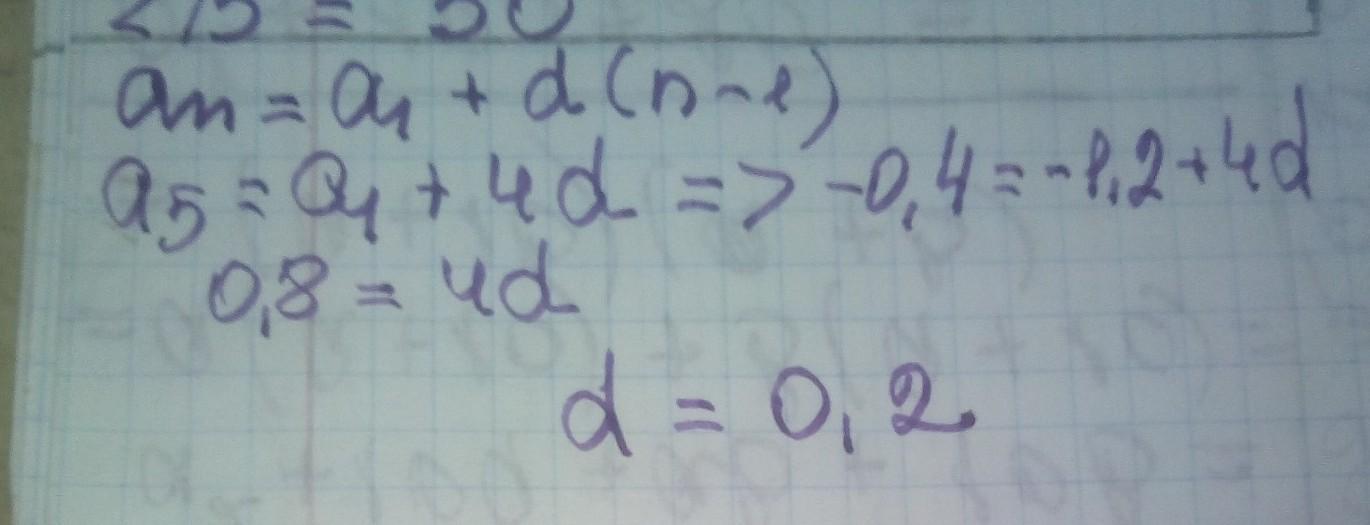 an = a1 + d(n-1)
a5 = a1 + 4d => -0,4 = -1,2 + 4d
0,8 = 4d
d = 0,2.